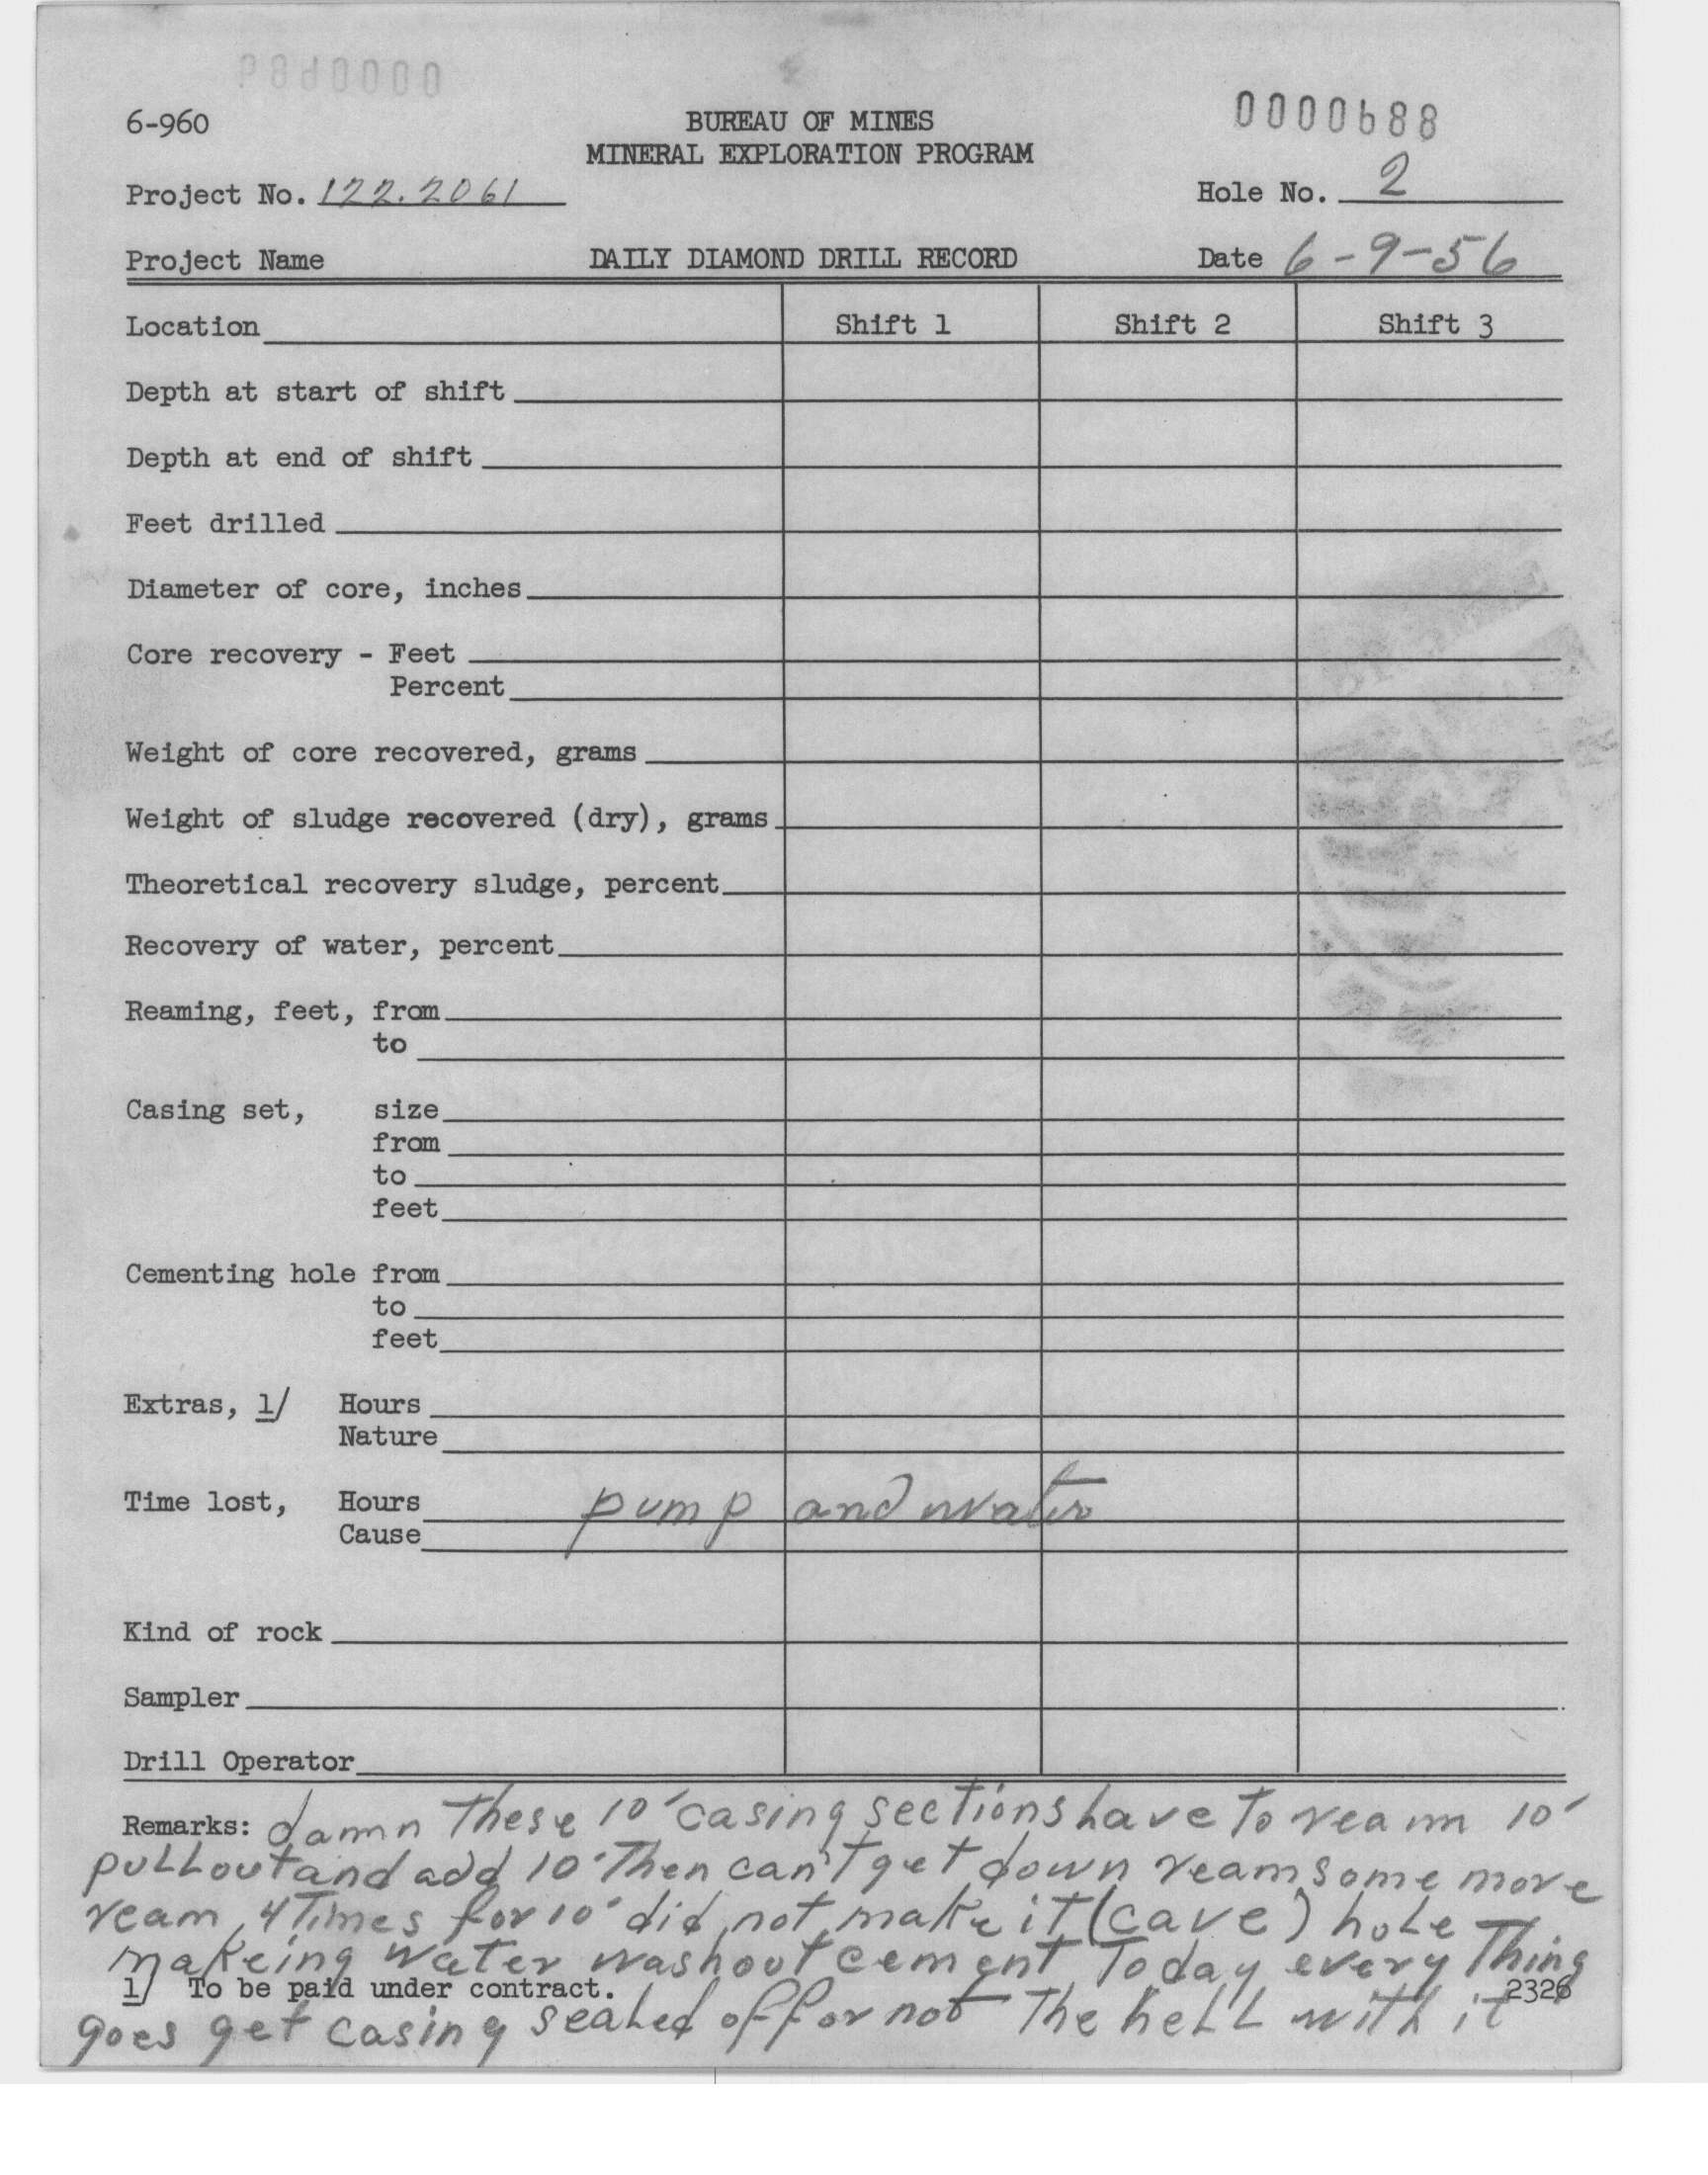 0000689
6-960
BUREAU OF MINES
0000688
MINERAL EXPLORATION PROGRAM
Project No. 122.2061
Hole No. 2
Project Name
DAILY DIAMOND DRILL RECORD
Date 6-9-56
Location
Shift 1
Shift 2
Shift 3
Depth at start of shift
Depth at end of shift
Feet drilled
Diameter of core, inches
Core recovery - Feet
Percent
Weight of core recovered, grams
Weight of sludge recovered (dry), grams
Theoretical recovery sludge, percent
Recovery of water, percent
Reaming, feet, from
to
Casing set, size
from
to
feet
Cementing hole from
to
feet
Extras, 1/ Hours
Nature
Time lost, Hours pump and water
Cause
Kind of rock
Sampler
Drill Operator
Remarks: damn These 10' casing sections have To ream 10'
pull out and add 10' Then can't get down ream some more
ream 4 Times for 10' did not make it (cave) hole
makeing water washout cement Today every Thing
1/ To be paid under contract.
2326
goes get casing sealed off or not The hell with it